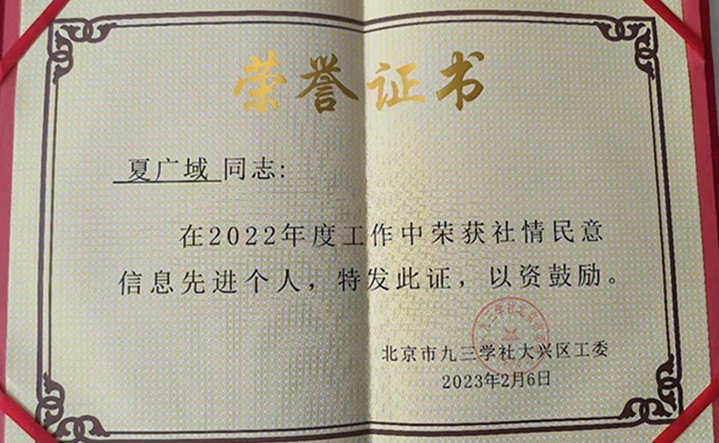 荣誉证书
夏广域 同志:
在2022年度工作中荣获社情民意
信息先进个人，特发此证，以资鼓励。
北京市九三学社大兴区工委
2023年2月6日